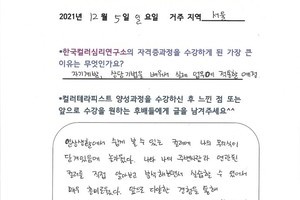 2021년 12월 5일 일요일 거주 지역 서울
•한국컬러심리연구소의 자격증과정을 수강하게 된 가장 큰
이유는 무엇인가요?
자기계발, 상담기법을 배워서 실제 업무에 접목할 예정
•컬러테라피스트 양성과정을 수강하신 후 느낀 점 또는
앞으로 수강을 원하는 후배들에게 글을 남겨주세요^^
일상생활에서 쉽게 볼 수 있는 컬러에 나의 무의식이
담겨있음에 놀라웠다. 나와 나의 주변사람과 연관된
컬러를 직접 알아보고 분석해보면서 실습할 수 있어서
매우 흥미로웠다. 앞으로 다양한 경험을 통해